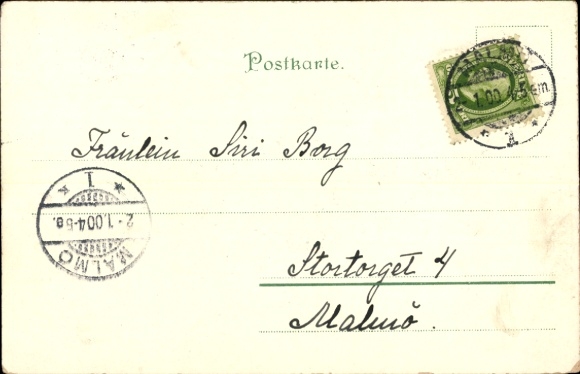 Postkarte.
Fräulein Siri Borg
Stortorget 4
Malmö.
1
2·1.00 4-5 e.
MALMÖ
1.00 4-5 em.